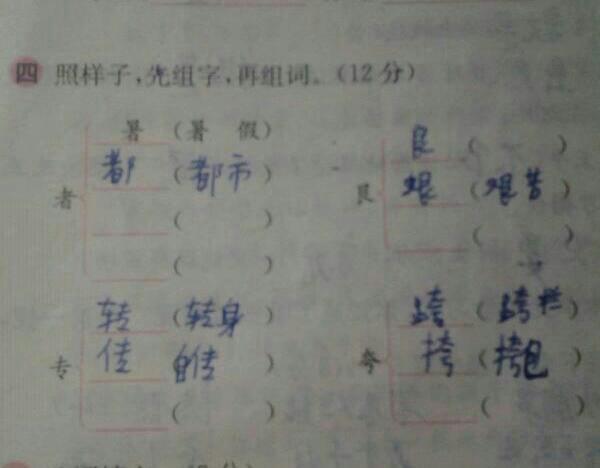 四 照样子,先组字,再组词。(12分)
暑 (暑 假)
都 (都市)
者
( )
( )
良 ( )
艰 (艰苦)
艮
( )
转 (转身)
传 自传 )
专
( )
跨 (跨栏)
挎 (挎包)
夸
( )